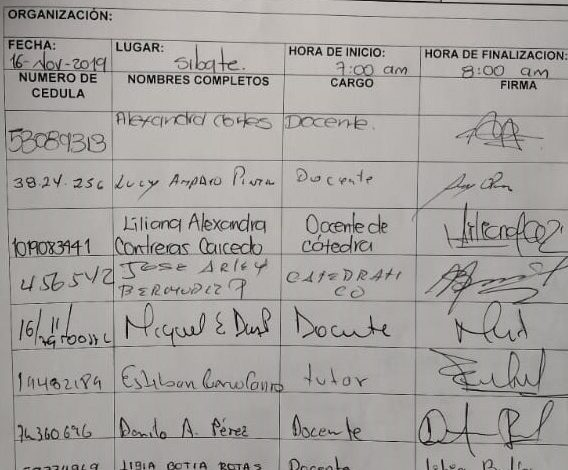 ORGANIZACIÓN:
FECHA: LUGAR: HORA DE INICIO: HORA DE FINALIZACION:
16-Nov-2019 Sibate. 7:00 am 8:00 am
NUMERO DE CEDULA NOMBRES COMPLETOS CARGO FIRMA
53089313 Alexandra Cortes Docente.
38.24.256 Lucy Amparo Docente
1019083441 Liliana Alexandra Contreras Caicedo Docente de cátedra
456542 JOSE ARLEY BERMUDEZ P CATEDRATICO
Miguel E Docente
19482189 Esteban tutor
74360696 Danilo A. Pérez Docente
LIGIA BOTIA ROTAS Docente